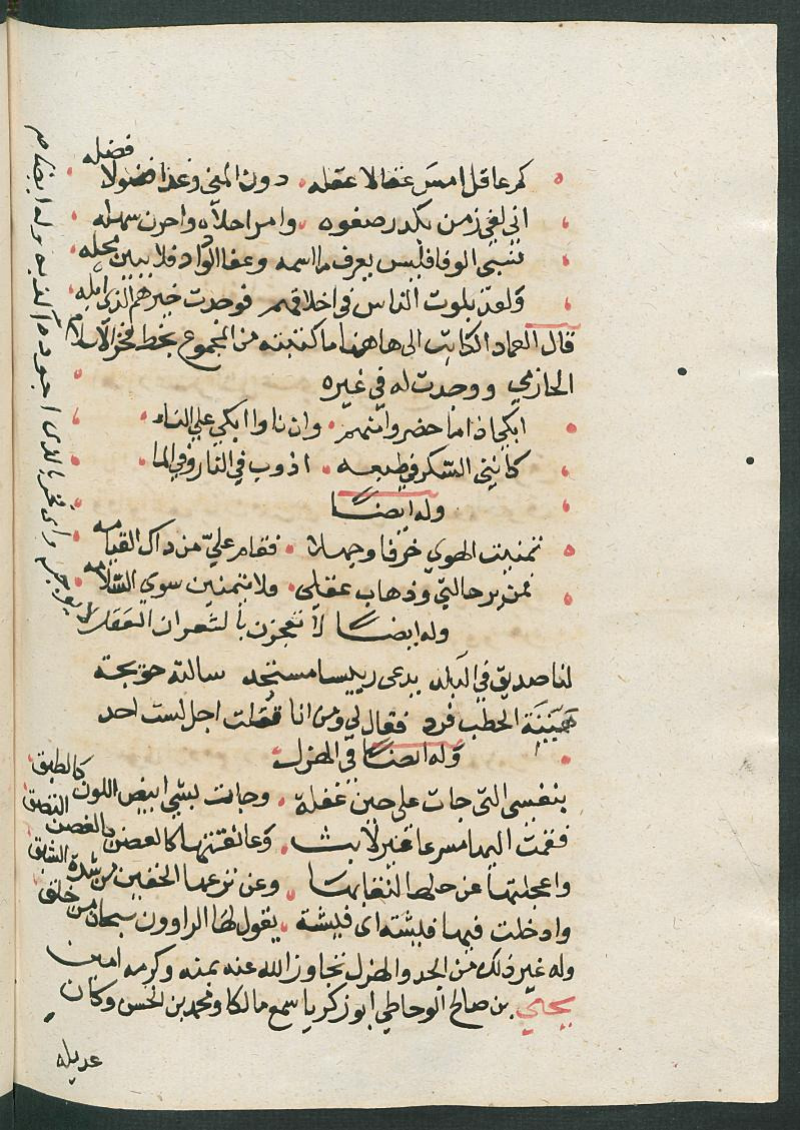 كم عاقل امسى عقالا عقله . دون المنى وغدا فضولا فضله
اني لفي زمن يكدر صفوه . وامر احلاه واحزن سهله
نسي الوفا فليس يعرف ما اسمه وعفا الوداد فلا يبين محله
ولقد بلوت الناس في اخلاقهم فوجدت خيرهم الذي لم ابله
قال العماد الكاتب الى هاهنا ما كتبته من المجموع بخط فخر الاسلام
الخازمي ووجدت له في غيره
ابكي اذا ما حضروا منهم . وان ناوا ابكي على النـاء
كانني السكر في طبعه . اذوب في النار وفي الما
وله ايضا
تمنيت الهوى خرفا وجهلا . فقام علي من ذاك القيامه
فمن بر حالتي وذهاب عقلي . ولا يتمنين سوى السلامه
وله ايضا لا تعجزن بالشعران العقار
لنا صديق في البلد يدعى رييسا مستجد سالته حويجة
هينة الحطب فرد فقال لي ومن انا فقلت اجل لست احد
وله ايضا في الهزل
بنفسي التي جات على حين غفلة . وجات بشي ابيض اللون كالطبق
فقمت اليها مسرعا غير لابث . وعانقتها كالغصن بالغصن
واعجلتها عن حلها لنقابها . وعن نزعها الخفين من شدة الشبق
وادخلت فيها فيشة اي فيشة . يقول لها الراوون سبحان من خلق
وله غير ذلك من الجد والهزل تجاوز الله عنه بمنه وكرمه امين
يحيى بن صالح الوحاظي ابو زكريا سمع مالكا ومحمد بن الحسن وكان
عديله